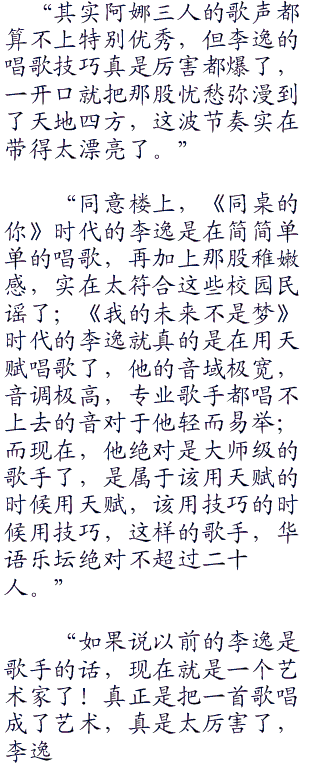 “其实阿娜三人的歌声都
算不上特别优秀，但李逸的
唱歌技巧真是厉害都爆了，
一开口就把那股忧愁弥漫到
了天地四方，这波节奏实在
带得太漂亮了。”
“同意楼上，《同桌的
你》时代的李逸是在简简单
单的唱歌，再加上那股稚嫩
感，实在太符合这些校园民
谣了；《我的未来不是梦》
时代的李逸就真的是在用天
赋唱歌了，他的音域极宽，
音调极高，专业歌手都唱不
上去的音对于他轻而易举；
而现在，他绝对是大师级的
歌手了，是属于该用天赋的
时候用天赋，该用技巧的时
候用技巧，这样的歌手，华
语乐坛绝对不超过二十
人。”
“如果说以前的李逸是
歌手的话，现在就是一个艺
术家了！真正是把一首歌唱
成了艺术，真是太厉害了，
李逸